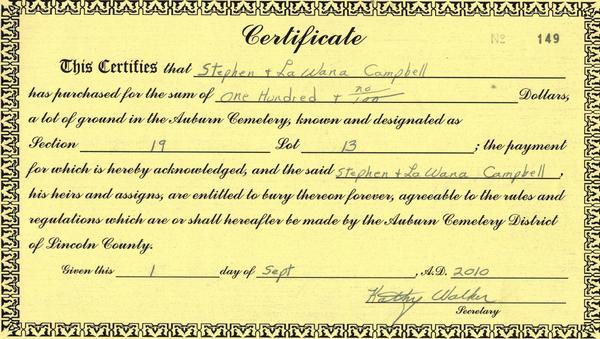 Certificate
Nº 149
This Certifies that Stephen & LaWana Campbell
has purchased for the sum of One Hundred & no/100 Dollars,
a lot of ground in the Auburn Cemetery, known and designated as
Section 19 Lot 13 ; the payment
for which is hereby acknowledged, and the said Stephen & LaWana Campbell,
his heirs and assigns, are entitled to bury thereon forever, agreeable to the rules and
regulations which are or shall hereafter be made by the Auburn Cemetery District
of Lincoln County.
Given this 1 day of Sept, A.D. 2010
Kathy Walker
Secretary